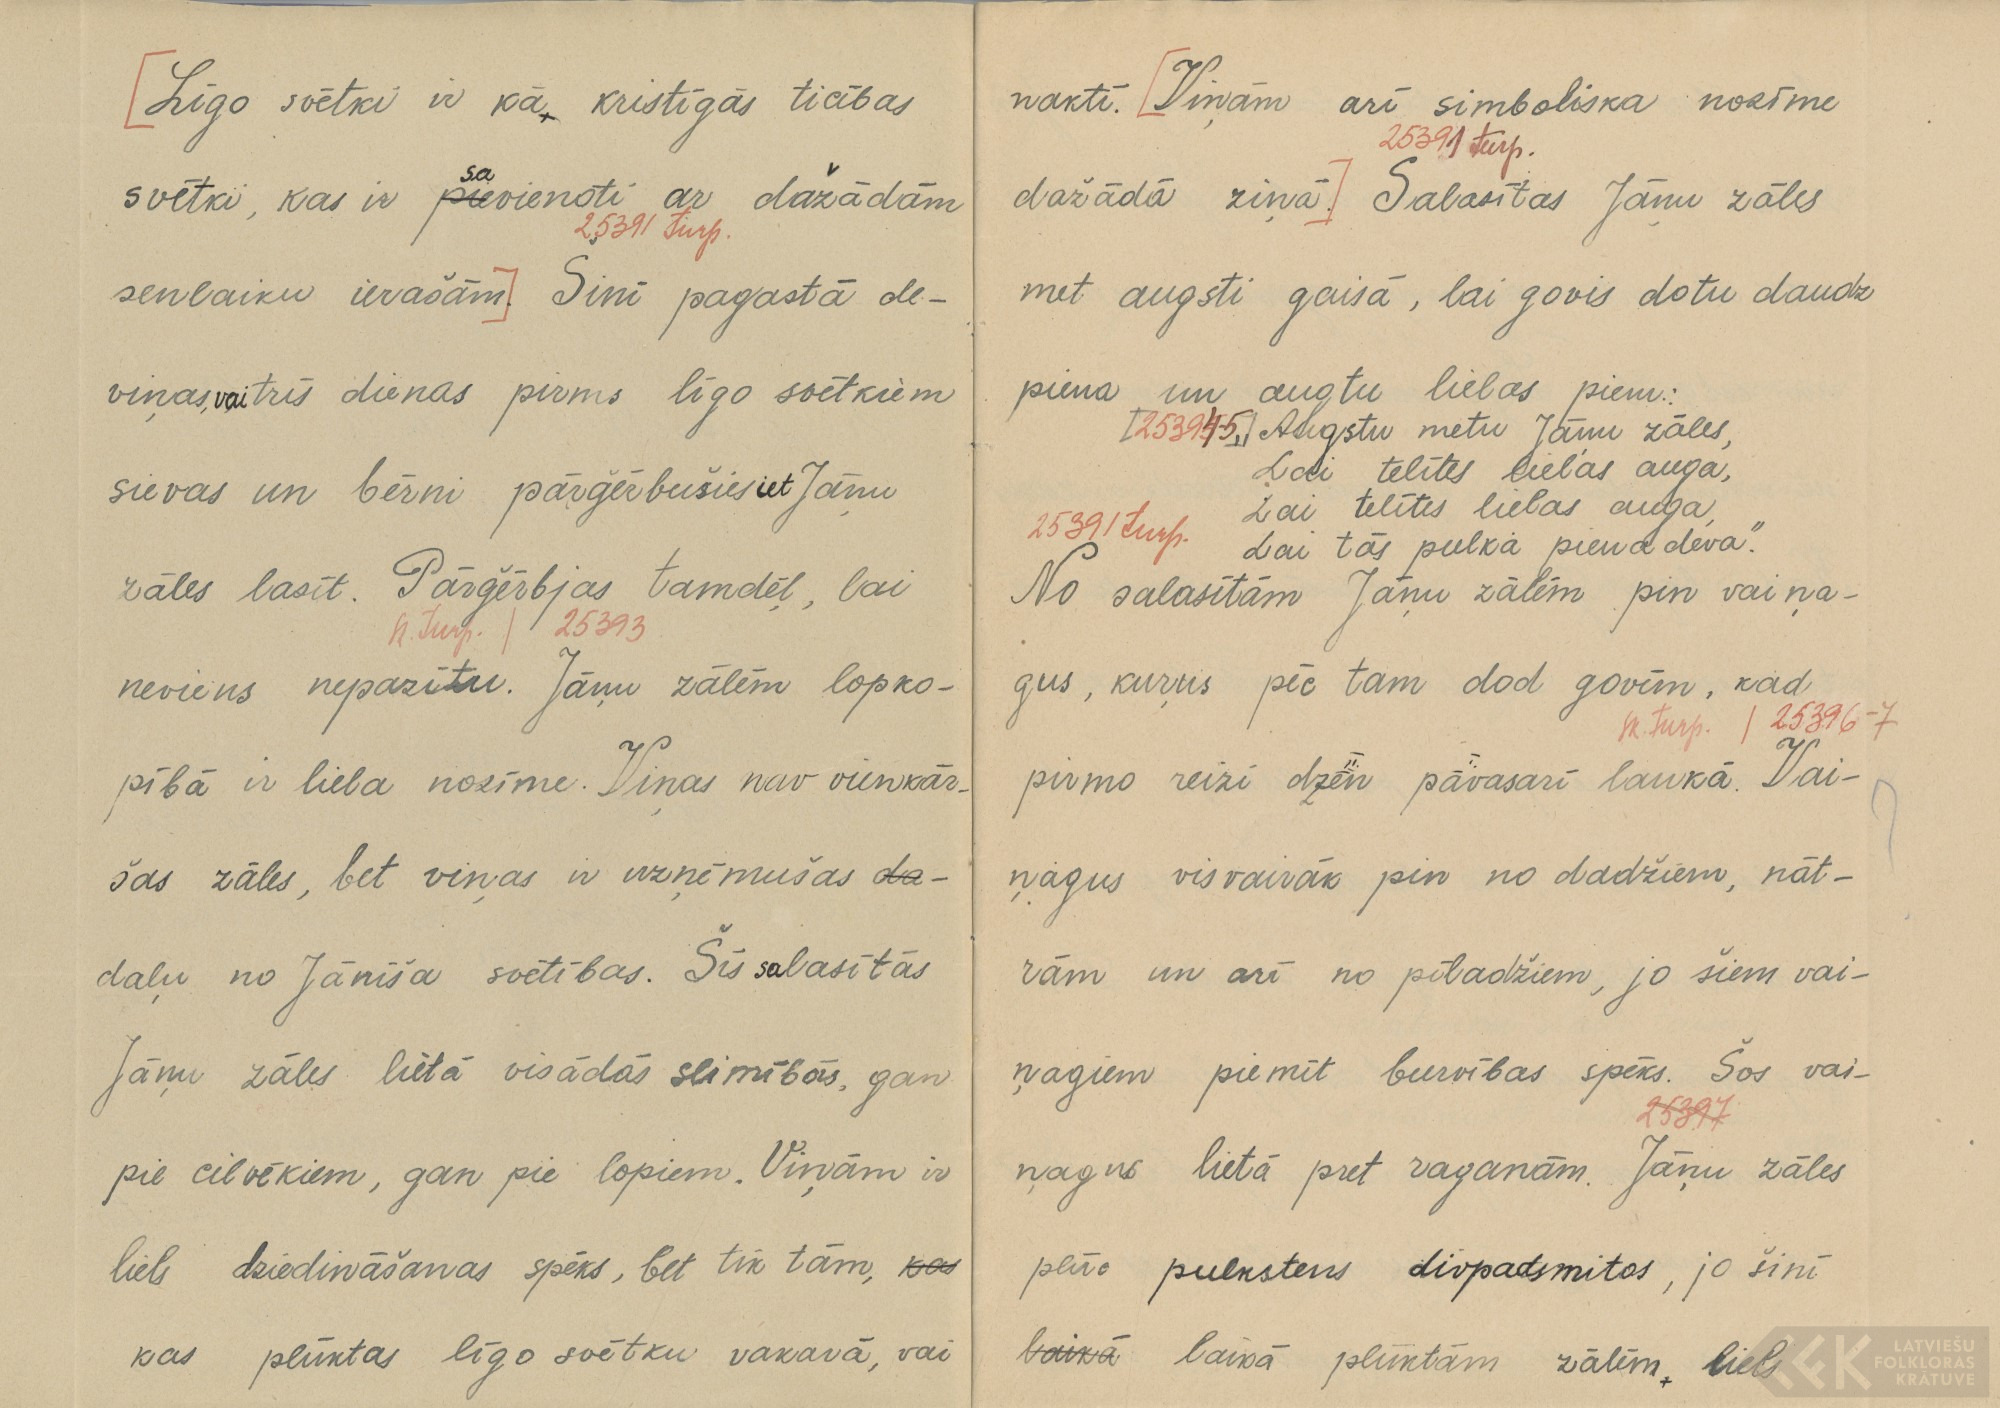 [Līgo svētki ir kā + kristīgās ticības
sa
svētki, kas ir pievienoti ar dažādām
25391 turp.
senlaiku ierašām.] Šinī pagastā de-
viņas, vai trīs dienas pirms līgo svētkiem
sievas un bērni pārģērbušies iet Jāņu
zāles lasīt. Pārģērbjas tamdēļ, lai
k. turp. | 25393
neviens nepazītu. Jāņu zālēm lopko-
pībā ir liela nozīme. Viņas nav vienkār-
šas zāles, bet viņas ir uzņēmušas da-
daļu no Jānīša svētības. Šīs salasītās
Jāņu zāles lietā visādās slimībās, gan
pie cilvēkiem, gan pie lopiem. Viņām ir
liels dziedināšanas spēks, bet tik tām, kas
kas plūktas līgo svētku vakavā, vai
naktī. [Viņām arī simboliska nozīme
25391 turp.
dažādā ziņā.] Salasītas Jāņu zāles
met augsti gaisā, lai govis dotu daudz
piena un augtu lielas piem.:
Augstu metu Jāņu zāles,
Lai telītes lielas auga,
Lai telītes lielas auga,
25391 turp.
Lai tās pulka piena deva".
No salasītām Jāņu zālēm pin vaiņa-
gus, kuŗus pēc tam dod govīm, kad
k. turp. | 25396-7
pirmo reizi dzen pavasarī laukā. Vai-
ņagus visvairāk pin no dadžiem, nāt-
rām un arī no pīladžiem, jo šiem vai-
ņagiem piemīt burvības spēks. Šos vai-
25397
ņagus lietā pret raganām. Jāņu zāles
plūc pulkstens divpadsmitos, jo šinī
laikā laikā plūktām zālēm + liels
LATVIEŠU
FOLKLORAS
KRĀTUVE